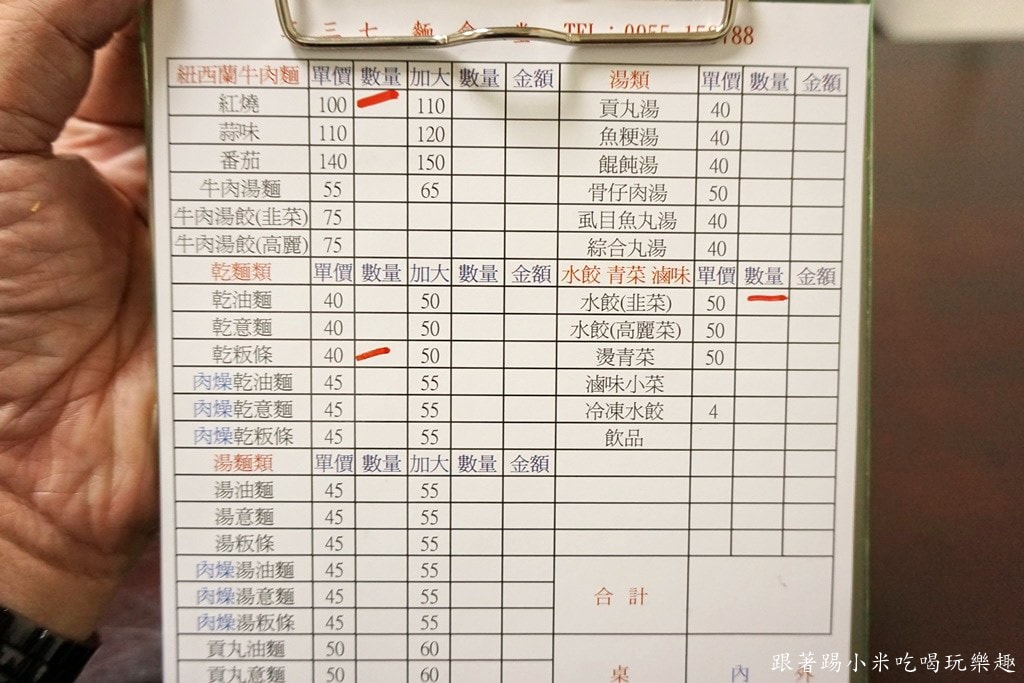 三 七 麵 食 堂 TEL：0955-15
紐西蘭牛肉麵 單價 數量 加大 數量 金額 湯類 單價 數量 金額
紅燒 100 110 貢丸湯 40
蒜味 110 120 魚粳湯 40
番茄 140 150 餛飩湯 40
牛肉湯麵 55 65 骨仔肉湯 50
牛肉湯餃(韭菜) 75 虱目魚丸湯 40
牛肉湯餃(高麗) 75 綜合丸湯 40
乾麵類 單價 數量 加大 數量 金額 水餃 青菜 滷味 單價 數量 金額
乾油麵 40 50 水餃(韭菜) 50
乾意麵 40 50 水餃(高麗菜) 50
乾粄條 40 50 燙青菜 50
肉燥乾油麵 45 55 滷味小菜
肉燥乾意麵 45 55 冷凍水餃 4
肉燥乾粄條 45 55 飲品
湯麵類 單價 數量 加大 數量 金額
湯油麵 45 55
湯意麵 45 55
湯粄條 45 55
肉燥湯油麵 45 55
肉燥湯意麵 45 55 合 計
肉燥湯粄條 45 55
貢丸油麵 50 60
貢丸意麵 50 60 桌 內 外
跟著踢小米吃喝玩樂趣